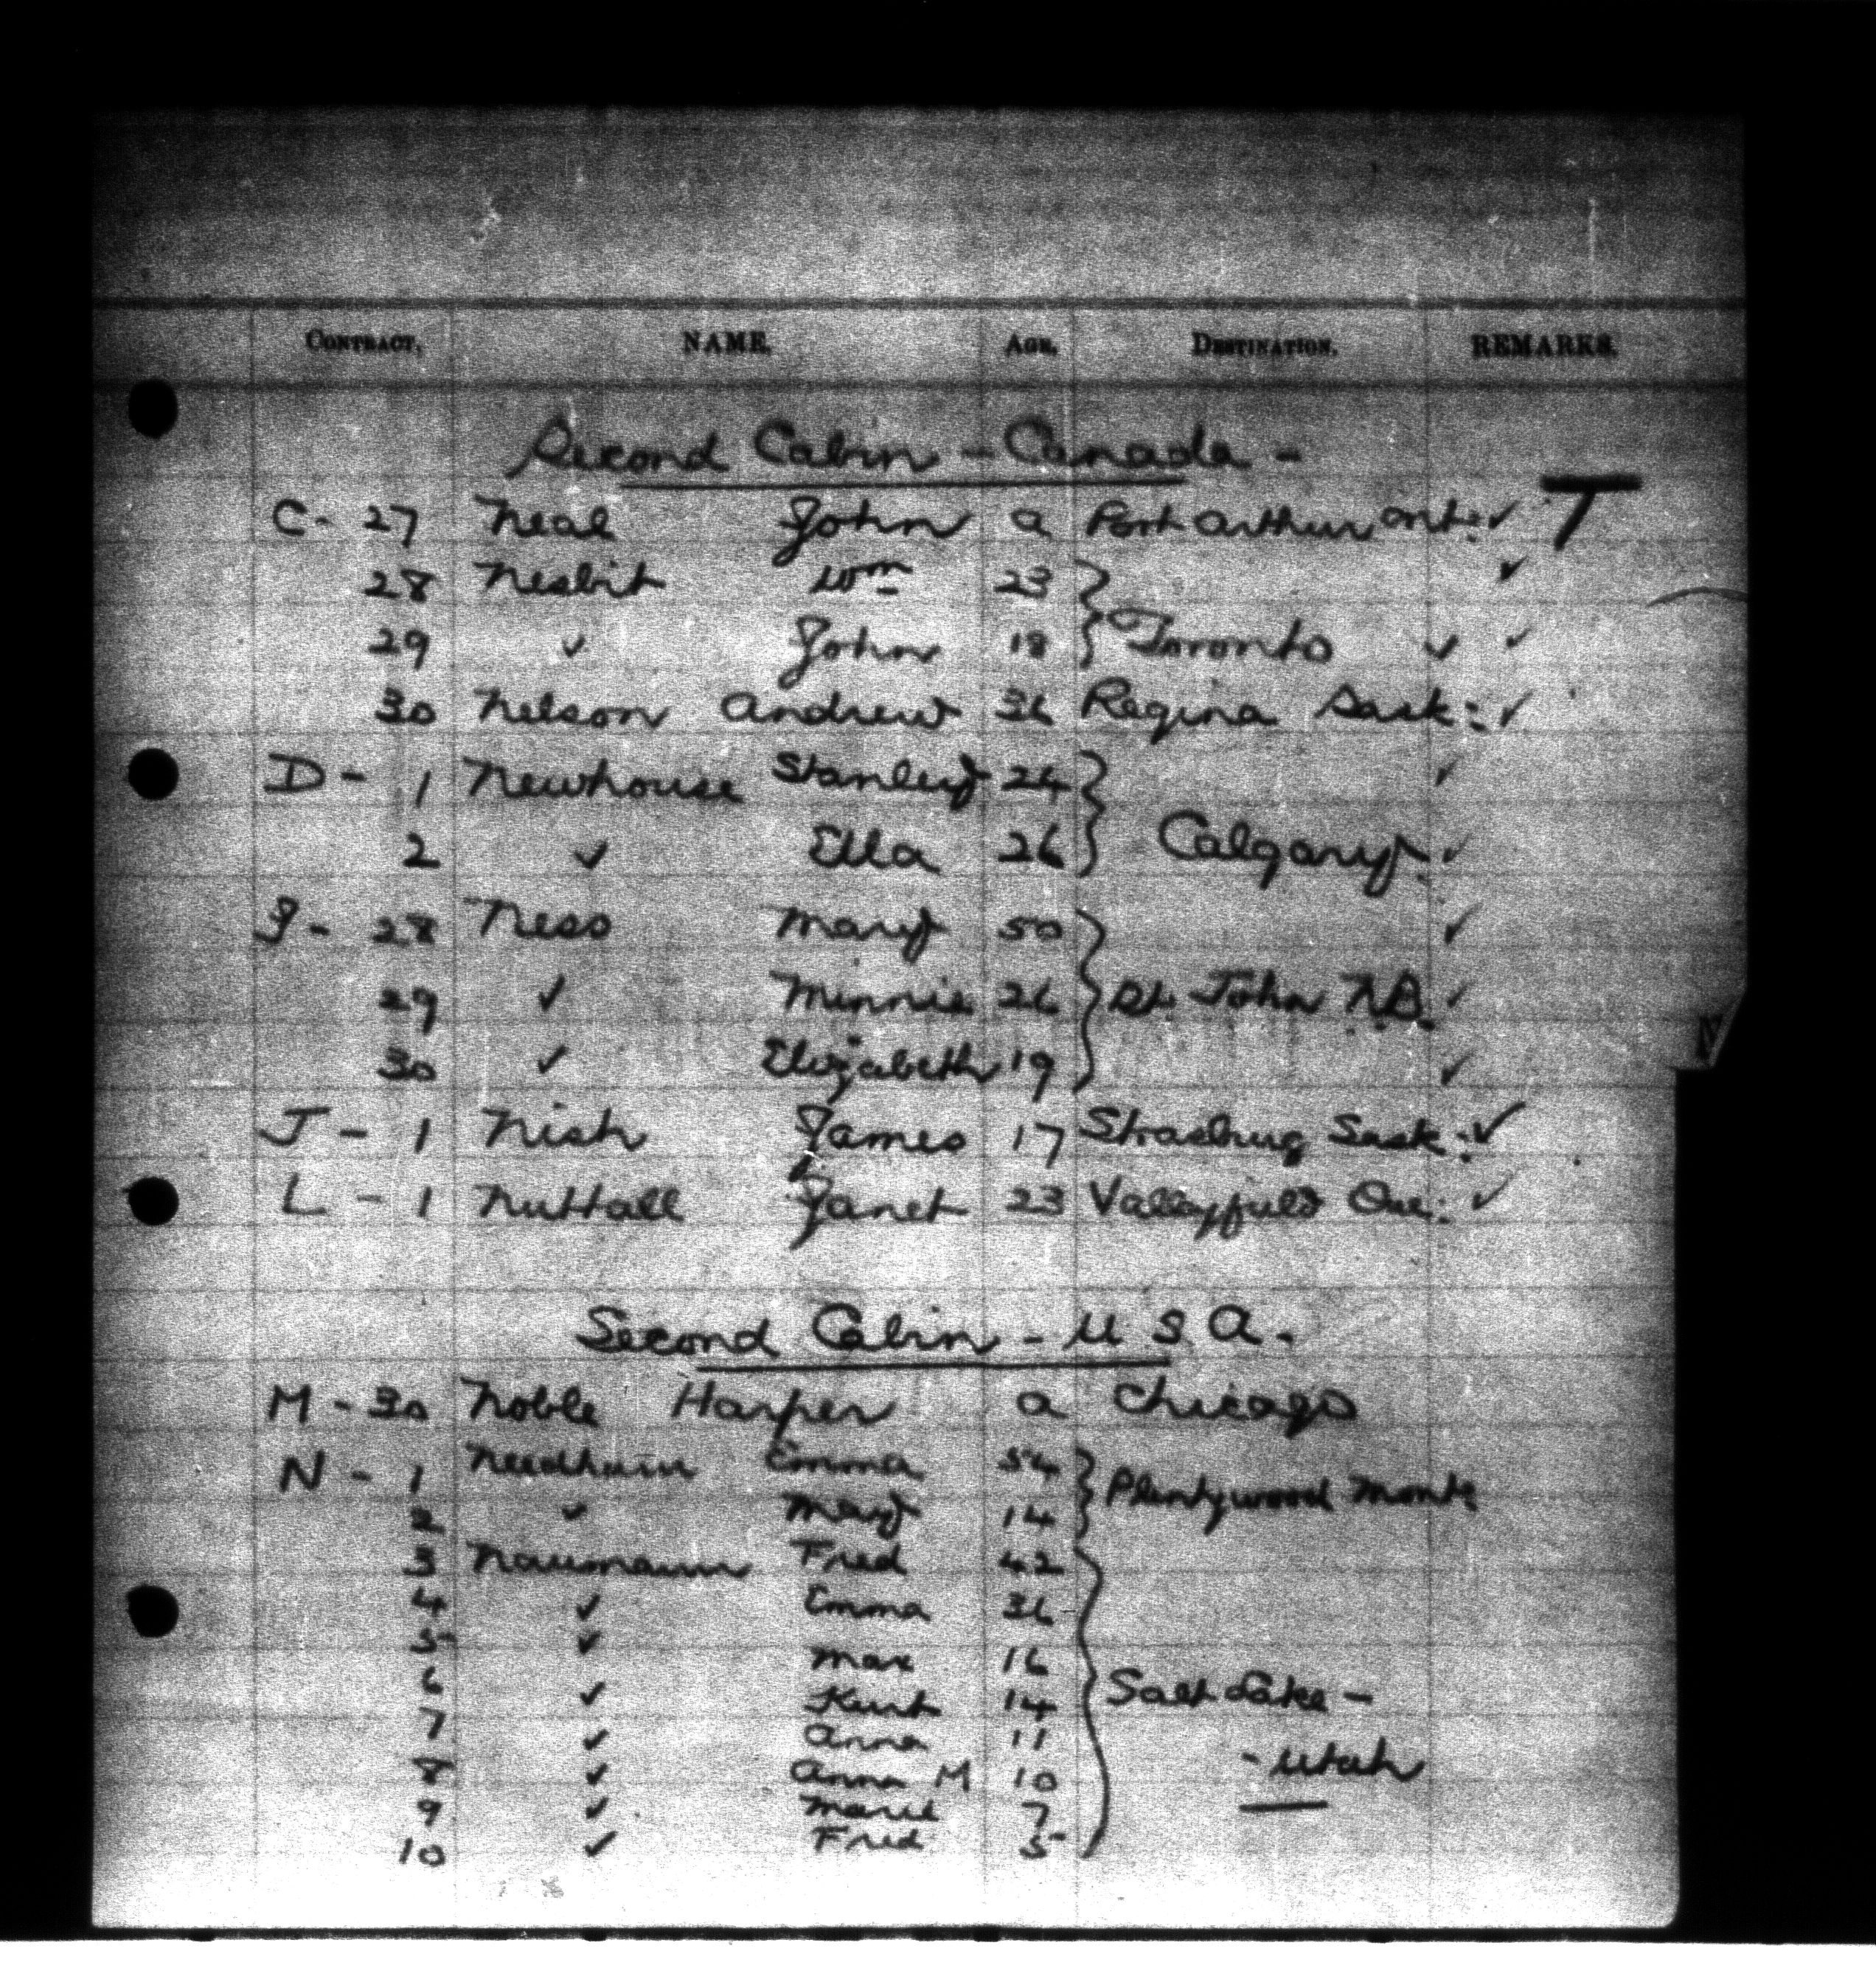 CONTRACT. NAME. AGE. DESTINATION. REMARKS.
Second Cabin - Canada -
C - 27 Neal John a Port Arthur Ont: ✓ T
28 Nesbit Wm 23 ✓
29 ✓ John 18 Toronto ✓ ✓
30 Nelson Andrew 36 Regina Sask: ✓
D - 1 Newhouse Stanley 24 ✓
2 ✓ Ella 26 Calgary. ✓
I - 28 Ness Mary 50 ✓
29 ✓ Minnie 26 St. John N.B. ✓
30 ✓ Elizabeth 19 ✓
J - 1 Nish James 17 Strasburg Sask: ✓
L - 1 Nuttall Janet 23 Valleyfield Que: ✓
Second Cabin - U.S.A.
M - 30 Noble Harper a Chicago
N - 1 Needham Emma 54
2 ✓ Mary 14 Plentywood Mont:
3 Naumann Fred 42
4 ✓ Emma 36
5 ✓ Max 16
6 ✓ Kurt 14 Salt Lake -
7 ✓ Anna 11
8 ✓ Anna M 10 - Utah
9 ✓ 7
10 ✓ Fred 5